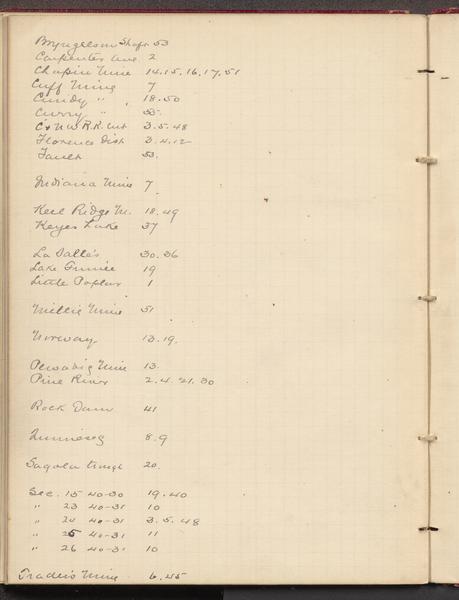 Bryngelson Shaft 53
Carpenter Ave. 2
Chapin Mine 14.15.16.17.51
Cuff Mine 7
Cundy " 18.50
Curry " 53.
C & N W R.R. cut 3.5.48
Florence Dist. 3.4.12
Fault 53.
Indiana Mine 7
Keel Ridge M. 18.49
Keyes Lake 37
La Salle's 30.36
Lake 19
Little Popple 1
Millie Mine 51
Norway 13.19.
Pewabic Mine 13.
Pine River 2.4.21.30
Rock Dam 41
Quinnesec 8.9
Sagola 20.
Sec. 15 40-30 19.40
" 23 40-31 10
" 24 40-31 3.5.48
" 25 40-31 11
" 26 40-31 10
Traders Mine 6.45